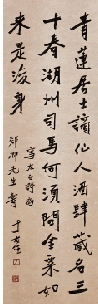 青蓮居士謫仙人酒肆藏名三
十春湖州司馬何須問金粟如
来是後身
寫太白詩
先生
于右任